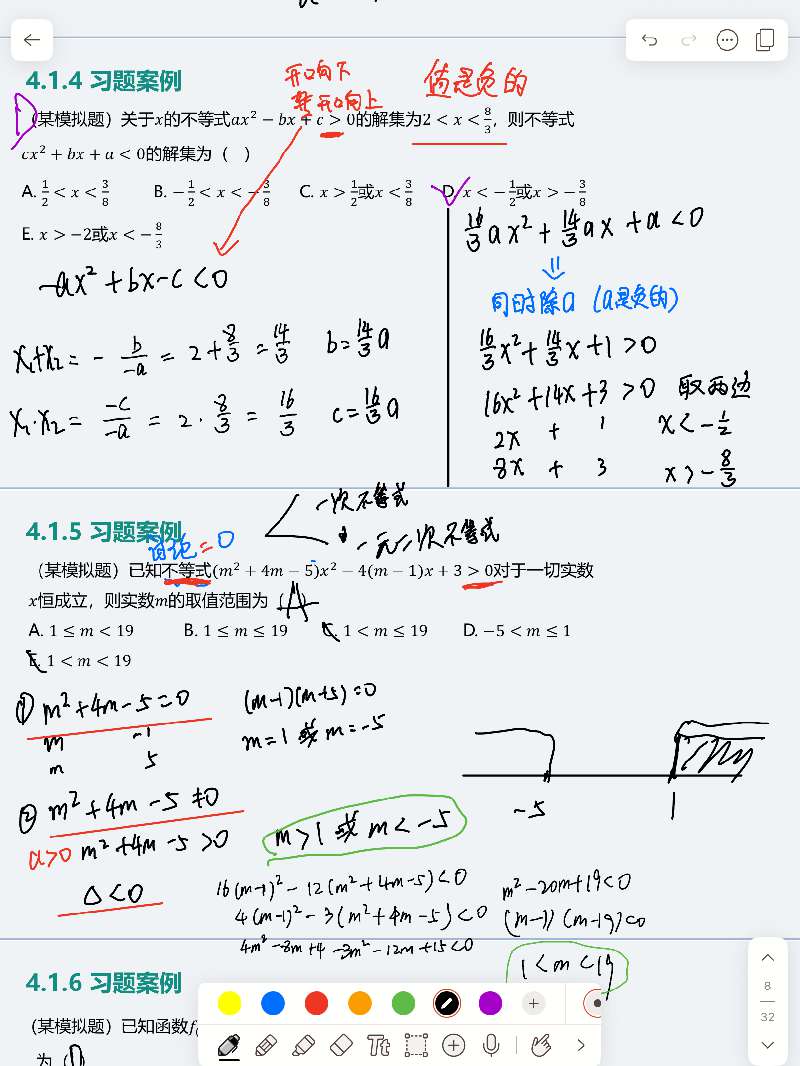 4.1.4 习题案例
开口向下
开口向上
值是负的
(某模拟题）关于x的不等式ax² − bx + c > 0的解集为2 < x < 8/3，则不等式
cx² + bx + a < 0的解集为（ ）
A. 1/2 < x < 3/8 B. −1/2 < x < −3/8 C. x > 1/2或x < 3/8 D. x < −1/2或x > −3/8
E. x > −2或x < −8/3
-ax² + bx - c < 0
x₁+x₂ = - b/-a = 2 + 8/3 = 14/3 b = 14/3 a
x₁·x₂ = -c/-a = 2 · 8/3 = 16/3 c = 16/3 a
16/3 ax² + 14/3 ax + a < 0
同时除a (a是负的)
16/3 x² + 14/3 x + 1 > 0
16x² + 14x + 3 > 0 取两边
2x + 1 x < -1/2
8x + 3 x > -8/3
4.1.5 习题案例
一次不等式
一元二次不等式
讨论 = 0
（某模拟题）已知不等式(m² + 4m − 5)x² − 4(m − 1)x + 3 > 0对于一切实数
x恒成立，则实数m的取值范围为（A）
A. 1 ≤ m < 19 B. 1 ≤ m ≤ 19 C. 1 < m ≤ 19 D. −5 < m ≤ 1
E. 1 < m < 19
① m² + 4m - 5 = 0 (m-1)(m+5) = 0
m -1 m = 1 或 m = -5
m 5
-5 1
② m² + 4m - 5 ≠ 0
a>0 m² + 4m - 5 > 0 m > 1 或 m < -5
Δ < 0
16(m-1)² - 12(m² + 4m - 5) < 0
4(m-1)² - 3(m² + 4m - 5) < 0
4m² - 8m + 4 - 3m² - 12m + 15 < 0
m² - 20m + 19 < 0
(m-1)(m-19) < 0
1 < m < 19
4.1.6 习题案例
（某模拟题）已知函数f(
为
Tt
8
32